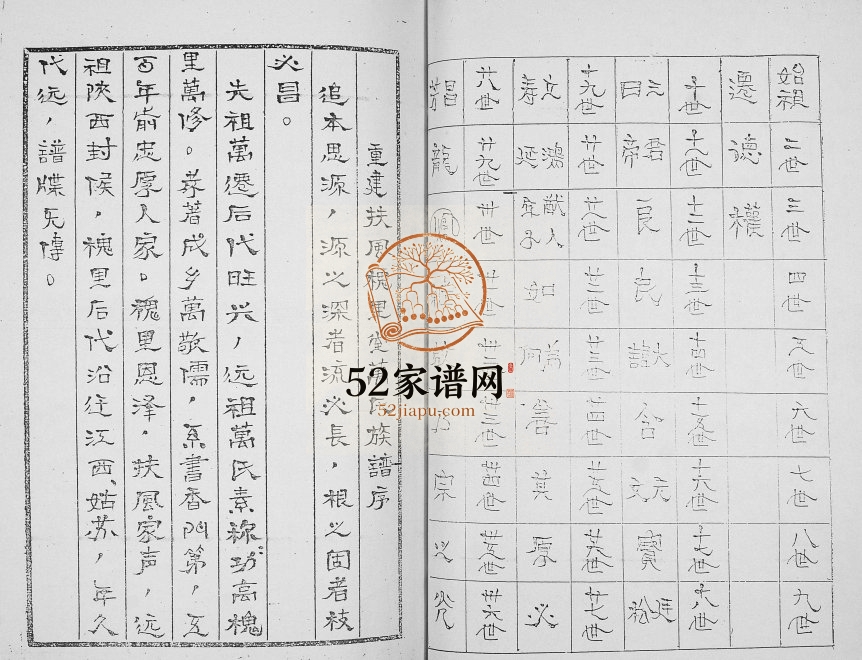 始祖 二世 三世 四世 五世 六世 七世 八世 九世
遷 德 穰
十世 十一世 十二世 十三世 十四世 十五世 十六世 十七世 十八世
三曰 君帝 良 民 合 元文 寶
十九世 廿世 廿一世 廿二世 廿三世 廿四世 廿五世 廿六世 廿七世
鴻延 如 善 其 原 必
廿八世 廿九世 卅世 卅一世 卅二世 卅三世 卅四世 卅五世 卅六世
昌 龍 宗 之 光
重建扶風槐里堂萬氏族譜序
追本思源，源之深者流必長，根之固者枝
必昌。
先祖萬遷后代旺兴，远祖萬氏素称功高槐
里萬修。茅著成乡萬敬儒，系書香门第，五
百年前忠厚人家。槐里恩泽，扶風家声，远
祖陕西封候，槐里后代沿迁江西、姑苏，年久
代远，譜牒无傳。
52家谱网
52jiapu.com